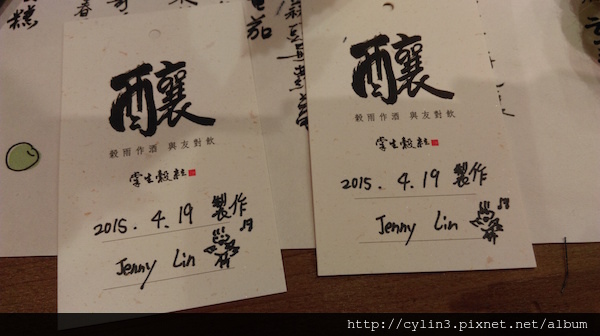 釀
穀雨作酒 與友對飲
掌生穀粒
2015. 4. 19 製作
Jenny Lin
釀
穀雨作酒 與友對飲
掌生穀粒
2015. 4. 19 製作
Jenny Lin
http://cylin3.pixnet.net/album